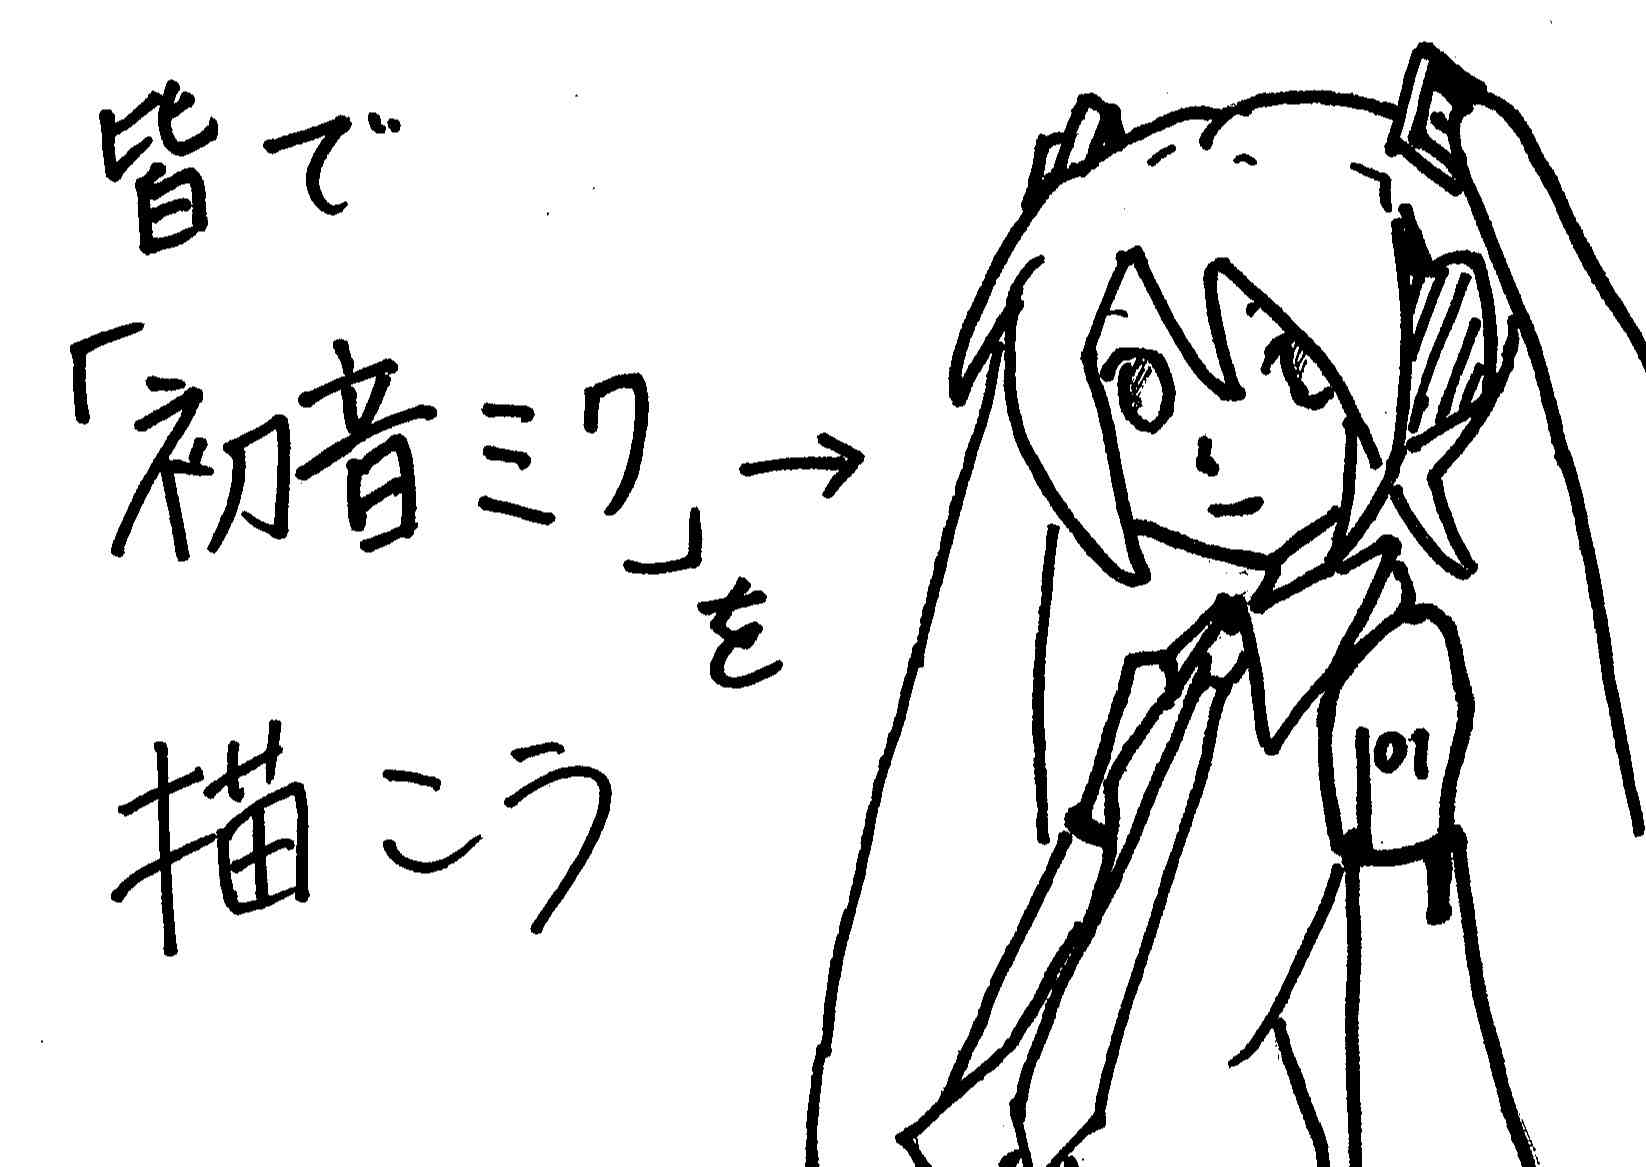 皆で
「初音ミク」を
描こう
→
01